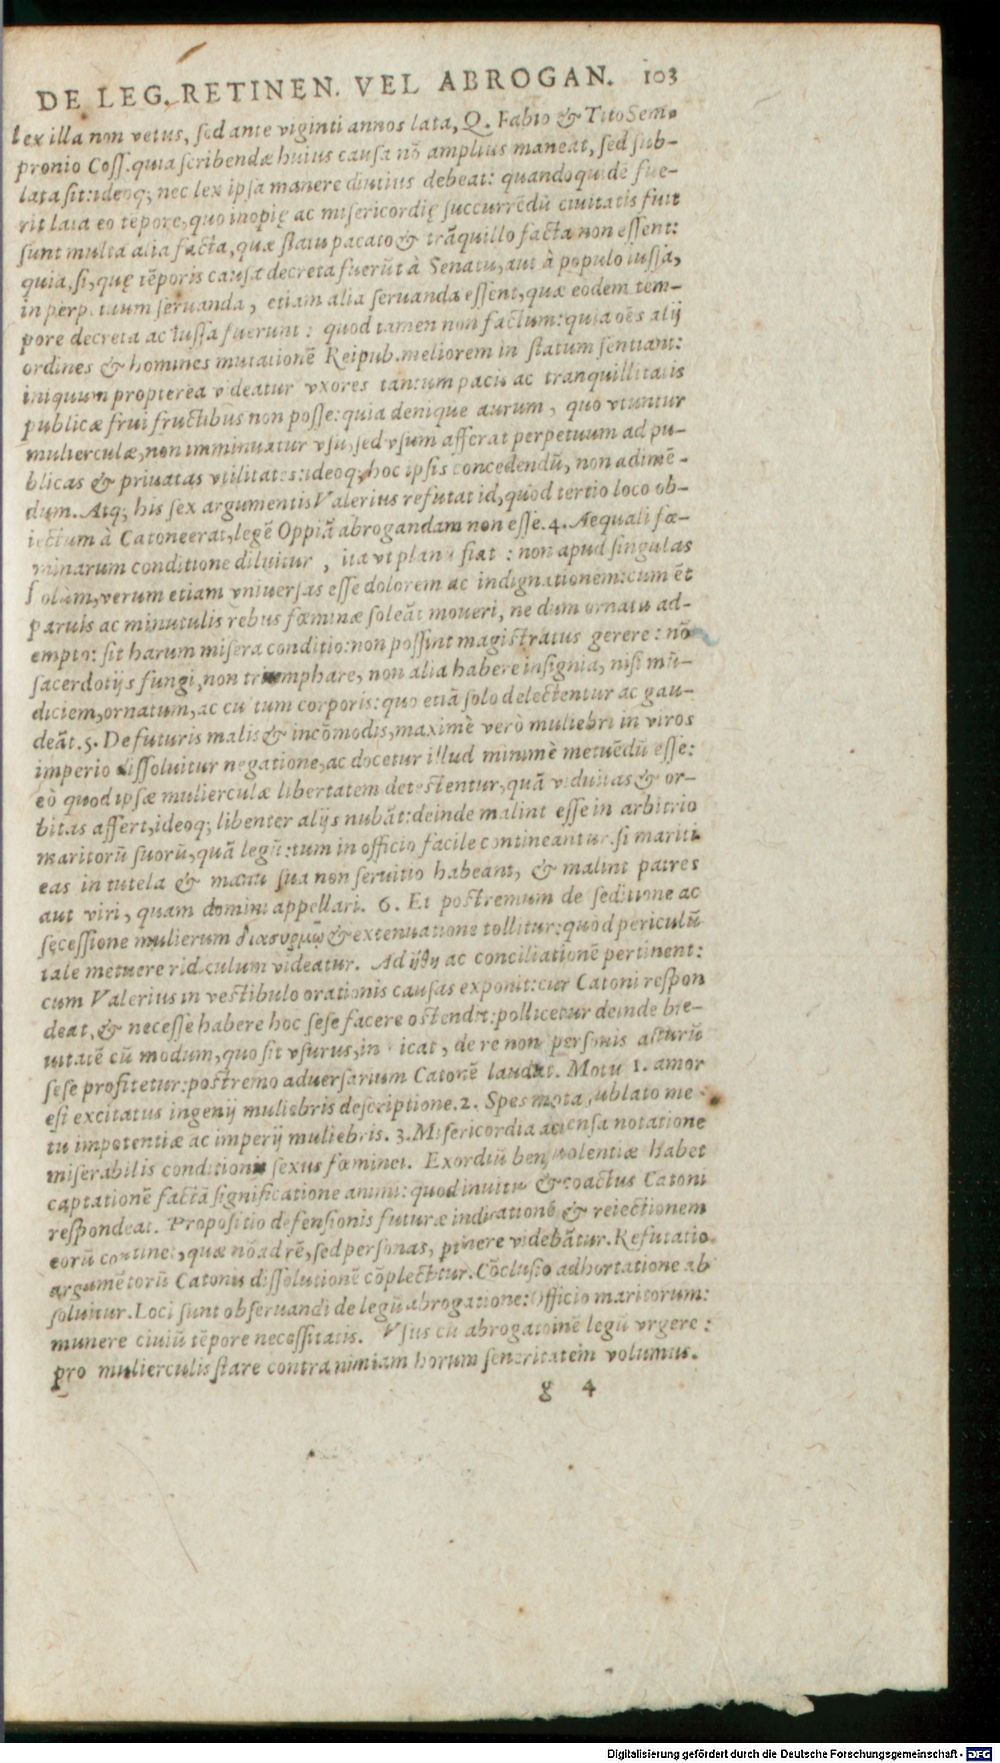 DE LEG. RETINEN. VEL ABROGAN. 103
lex illa non vetus, sed ante viginti annos lata, Q. Fabio & Tito Sem-
pronio Coss. quia scribendæ huius causa nō amplius maneat, sed sub-
lata sit: ideoq; nec lex ipsa manere diutius debeat: quandoquidē fue-
rit lata eo tēpore, quo inopię ac misericordię succurrēdū ciuitatis fuit
sunt multa alia facta, quæ statu pacato & trāquillo facta non essent:
quia, si, quę tēporis causa decreta fuerūt à Senatu, aut à populo iussa,
in perpetuum seruanda, etiam alia seruanda essent, quæ eodem tem-
pore decreta ac iussa fuerunt: quod tamen non factum: quia oēs alij
ordines & homines mutationē Reipub. meliorem in statum sentiant:
iniquum propterea videatur vxores tantum pacis ac tranquillitatis
publicæ frui fructibus non posse: quia denique aurum, quo vtuntur
mulierculæ, non imminuatur vsu, sed vsum afferat perpetuum ad pu-
blicas & priuatas vtilitates: ideoq; hoc ipsis concedendū, non adimē-
dum. Atq; his sex argumentis Valerius refutat id, quod tertio loco ob-
iectum à Catone erat, legē Oppiā abrogandam non esse. 4. Aequali fœ-
minarum conditione diluitur, ita vt planè fiat: non apud singulas
solum, verum etiam vniuersas esse dolorem ac indignationem: cum ēt
paruis ac minutulis rebus fœminæ soleāt moueri, ne dum ornatu ad-
empto: sit harum misera conditio: non possint magistratus gerere: nō
sacerdotijs fungi, non triumphare, non alia habere insignia, nisi mū-
diciem, ornatum, ac cultum corporis: quo etiā solo delectentur ac gau-
deāt. 5. De futuris malis & incōmodis, maximè verò muliebri in viros
imperio dissoluitur negatione, ac docetur illud minimè metuēdū esse:
eò quod ipsæ mulierculæ libertatem detestentur, quā viduitas & or-
bitas affert, ideoq; libenter alijs nubāt: deinde malint esse in arbitrio
maritorū suorū, quā legū: tum in officio facile contineantur. si mariti
eas in tutela & manu sua non seruitio habeant, & malint patres
aut viri, quam domini appellari. 6. Et postremum de seditione ac
secessione mulierum διασυρμῷ & extenuatione tollitur: quòd periculū
tale metuere ridiculum videatur. Ad ἤθη ac conciliationē pertinent:
cum Valerius in vestibulo orationis causas exponit: cur Catoni respon
deat, & necesse habere hoc sese facere ostendit: pollicetur deinde bre-
uitatē cū modum, quo sit vsurus, indicat, de re non personis acturū
sese profitetur: postremo aduersarium Catonē laudat. Motu 1. amor
est excitatus ingenij muliebris descriptione. 2. Spes mota sublato me-
tu impotentiæ ac imperij muliebris. 3. Misericordia accensa notatione
miserabilis conditionis sexus fœminei. Exordiū beneuolentiæ habet
captationē factā significatione animi: quod inuitus & coactus Catoni
respondeat. Propositio defensionis futuræ indicationē & reiectionem
eorū continet, quæ nō ad rē, sed personas, ptinere videbātur. Refutatio
argumētorū Catonis dissolutionē cōplectitur. Cōclusio adhortatione ab
soluitur. Loci sunt obseruandi de legū abrogatione: Officio maritorum:
munere ciuiū tēpore necessitatis. Vsus cū abrogatoinē legū vrgere:
pro mulierculis stare contra nimiam horum seueritatem volumus.
g 4
Digitalisierung gefördert durch die Deutsche Forschungsgemeinschaft - DFG